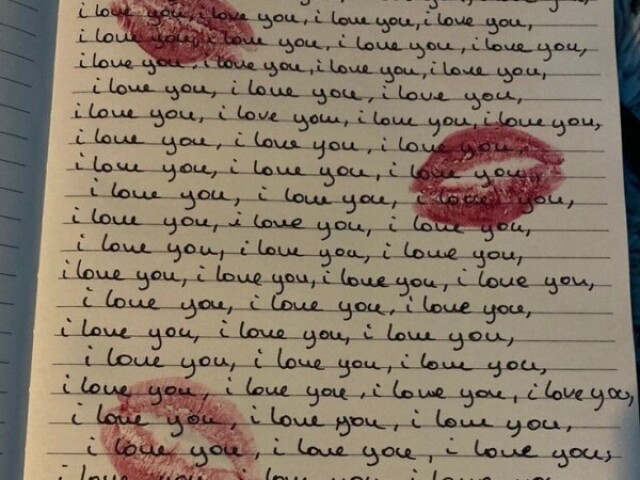 i love you, i love you, i love you, i love you,
i love you, i love you, i love you, i love you,
i love you, i love you, i love you, i love you,
i love you, i love you, i love you,
i love you, i love you, i love you, i love you,
i love you, i love you, i love you,
i love you, i love you, i love you,
i love you, i love you, i love you,
i love you, i love you, i love you,
i love you, i love you, i love you,
i love you, i love you, i love you, i love you,
i love you, i love you, i love you,
i love you, i love you, i love you,
i love you, i love you, i love you,
i love you, i love you, i love you, i love you,
i love you, i love you, i love you,
i love you, i love you, i love you,